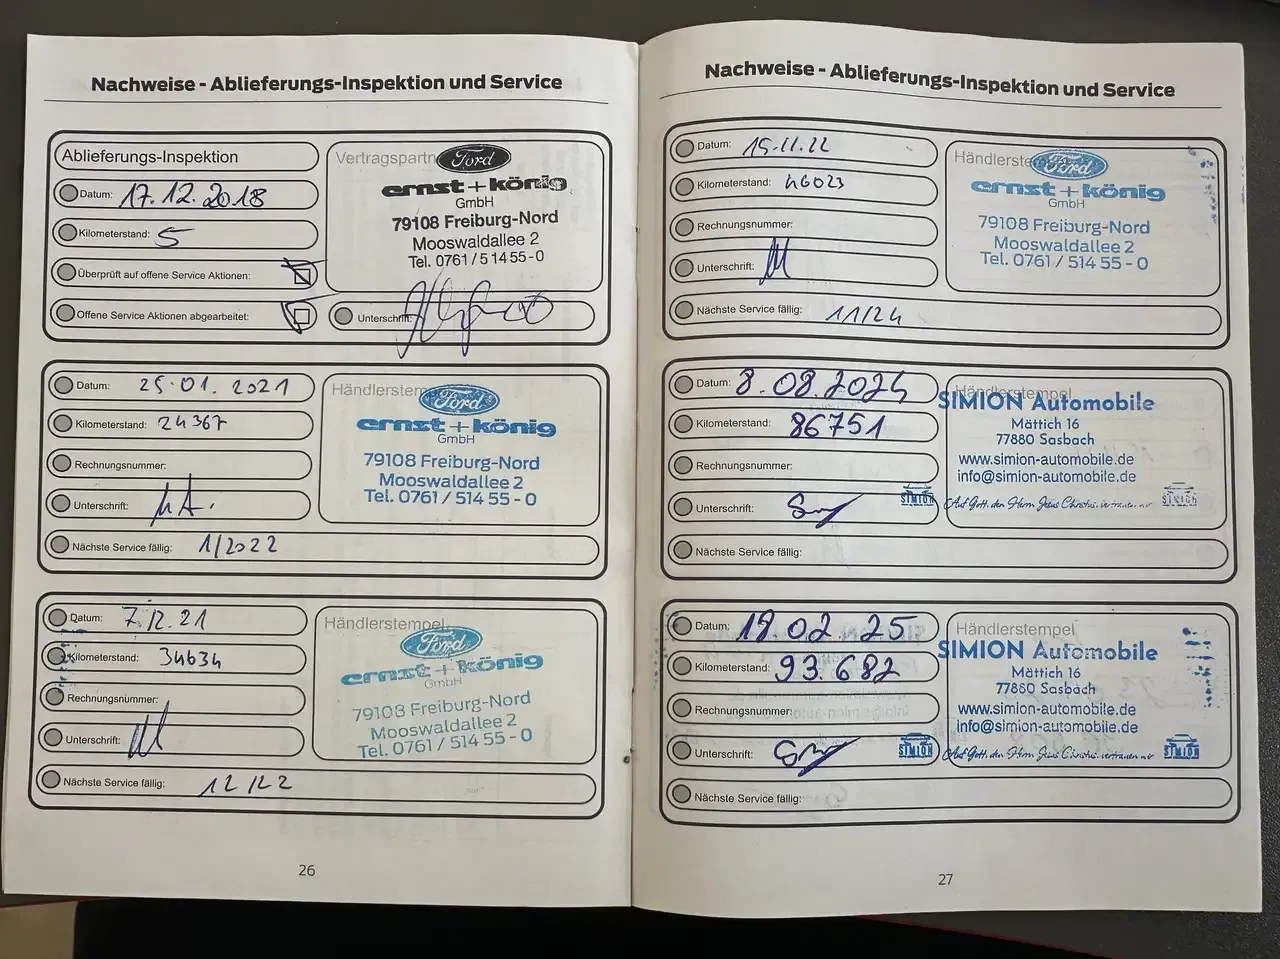 Nachweise - Ablieferungs-Inspektion und Service
Ablieferungs-Inspektion
Datum: 17.12.2018
Kilometerstand: 5
Überprüft auf offene Service Aktionen:
Offene Service Aktionen abgearbeitet:
Vertragspartn
Ford
ernst+könig
GmbH
79108 Freiburg-Nord
Mooswaldallee 2
Tel. 0761/51455-0
Unterschrift:
Datum: 25.01.2021
Kilometerstand: 24367
Rechnungsnummer:
Unterschrift:
Nächste Service fällig: 1/2022
Händlerstem
Ford
ernst+könig
GmbH
79108 Freiburg-Nord
Mooswaldallee 2
Tel. 0761/51455-0
Datum: 7.12.21
Kilometerstand: 34634
Rechnungsnummer:
Unterschrift:
Nächste Service fällig: 12/22
Händlerstempel
Ford
ernst+könig
GmbH
79108 Freiburg-Nord
Mooswaldallee 2
Tel. 0761/51455-0
26
Nachweise - Ablieferungs-Inspektion und Service
Datum: 15.11.22
Kilometerstand: 46023
Rechnungsnummer:
Unterschrift:
Nächste Service fällig: 11/24
Händlerste
Ford
ernst+könig
GmbH
79108 Freiburg-Nord
Mooswaldallee 2
Tel. 0761/51455-0
Datum: 8.08.2024
Kilometerstand: 86751
Rechnungsnummer:
Unterschrift:
Nächste Service fällig:
Händlerstempel
SIMION Automobile
Mättich 16
77880 Sasbach
www.simion-automobile.de
info@simion-automobile.de
SIMION Auf Gott, den Herrn Jesus Christus, vertrauen wir SIMION
Datum: 18.02.25
Kilometerstand: 93.682
Rechnungsnummer:
Unterschrift:
Nächste Service fällig:
Händlerstempel
SIMION Automobile
Mättich 16
77880 Sasbach
www.simion-automobile.de
info@simion-automobile.de
SIMION Auf Gott, den Herrn Jesus Christus, vertrauen wir SIMION
27